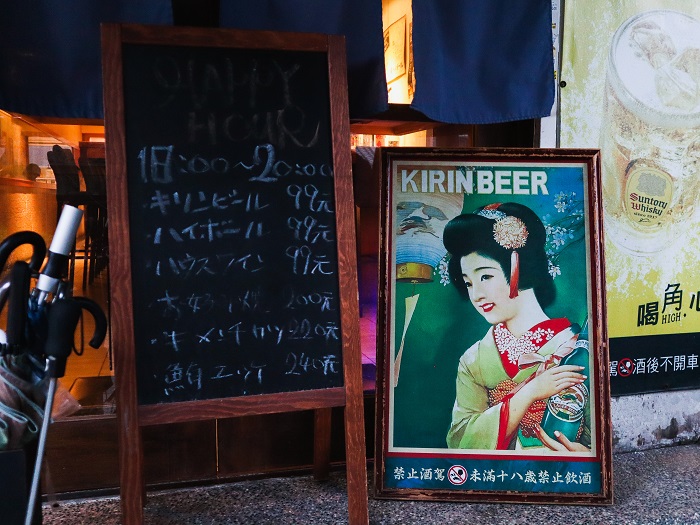 HAPPY
HOUR
18:00~20:00
・キリンビール 99元
・ハイボール 99元
・ハウスワイン 99元
・お好み焼 200元
・キーメンチカツ 220元
240元
KIRIN BEER
禁止酒駕 未滿十八歲禁止飲酒
SUNTORY
WHISKY
喝角
HIGH
酒後不開車